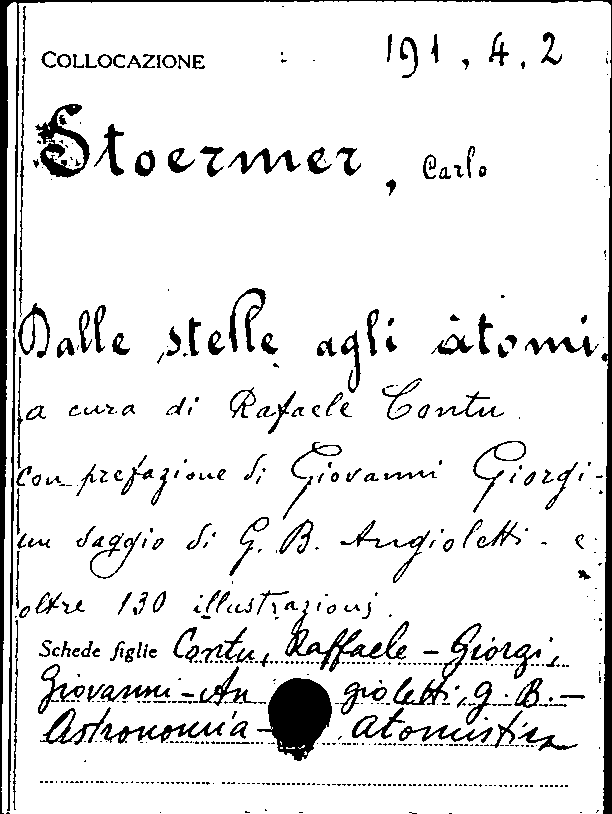 COLLOCAZIONE 191, 4, 2
Stoermer, Carlo
Dalle stelle agli àtomi.
a cura di Rafaele Contu
con prefazione di Giovanni Giorgi -
un saggio di G. B. Angioletti - e
oltre 130 illustrazioni.
Schede figlie Contu, Raffaele - Giorgi,
Giovanni - An gioletti, G. B. -
Astronomia - atomistica